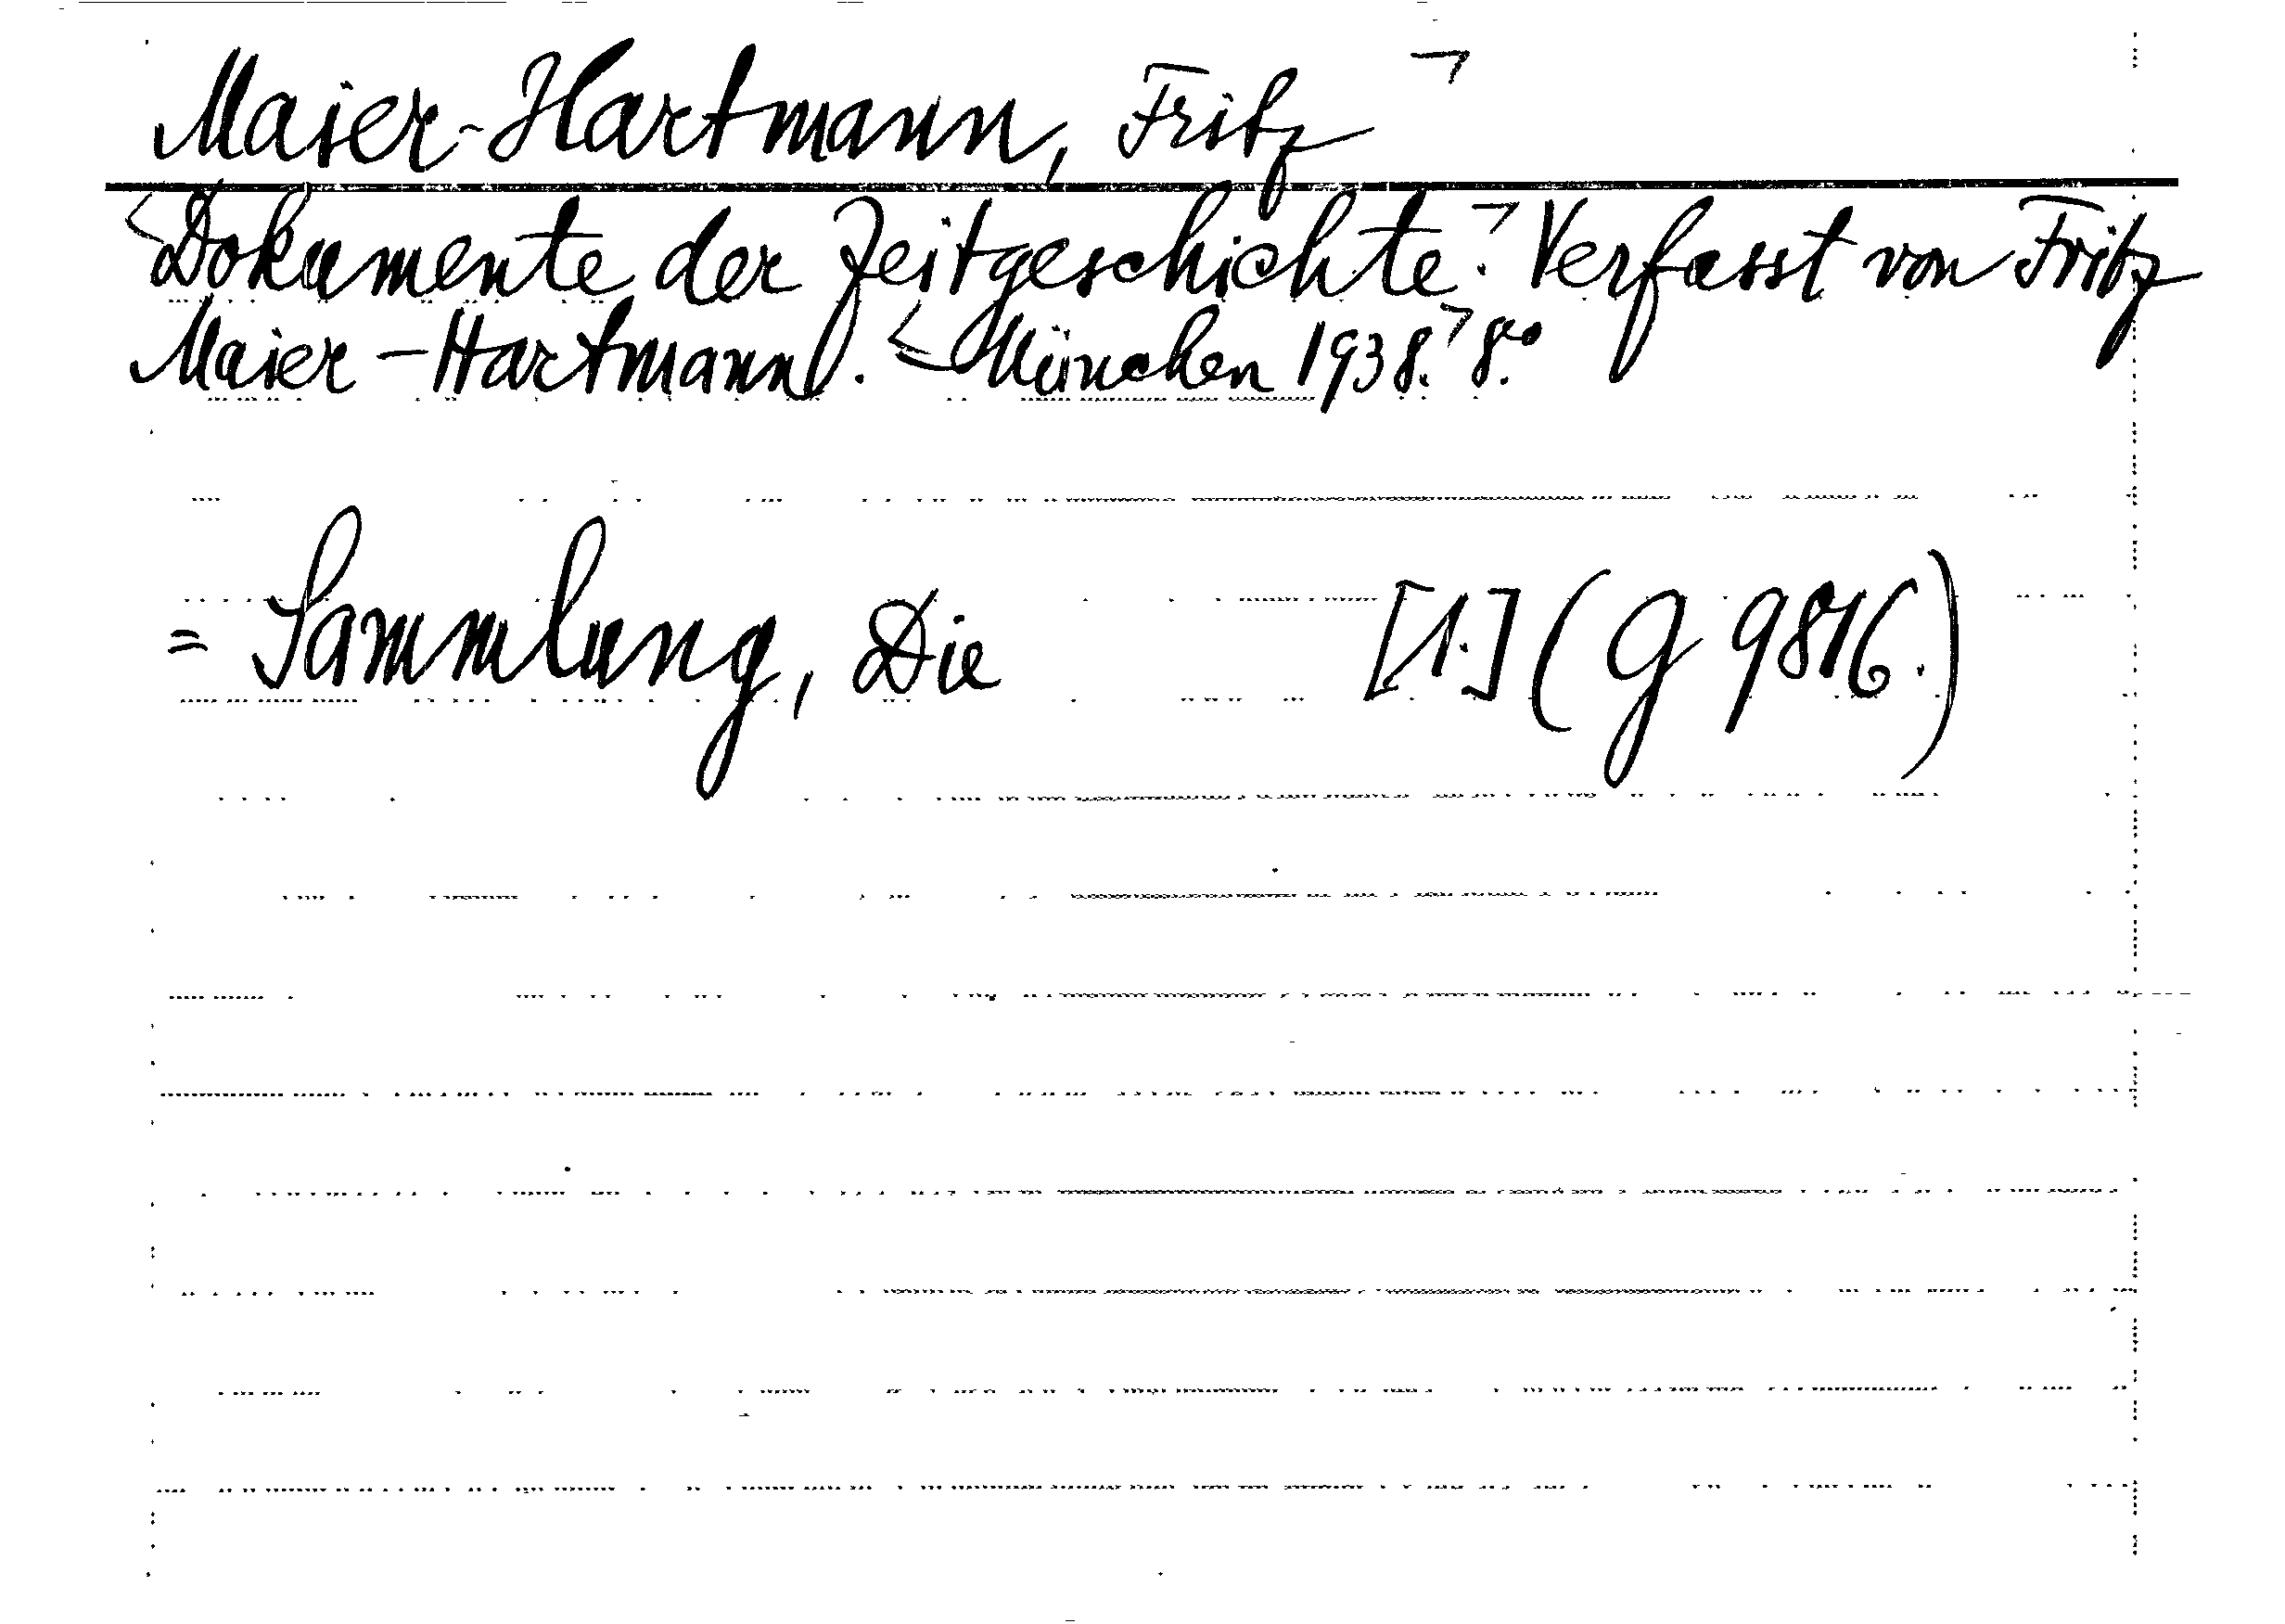 Maier-Hartmann, Fritz ¬
<Dokumente der Zeitgeschichte.¬ Verfasst von Fritz
Maier-Hartmann. <München 1938.¬ 8.°
= Sammlung, Die [1.] (G 9816.)